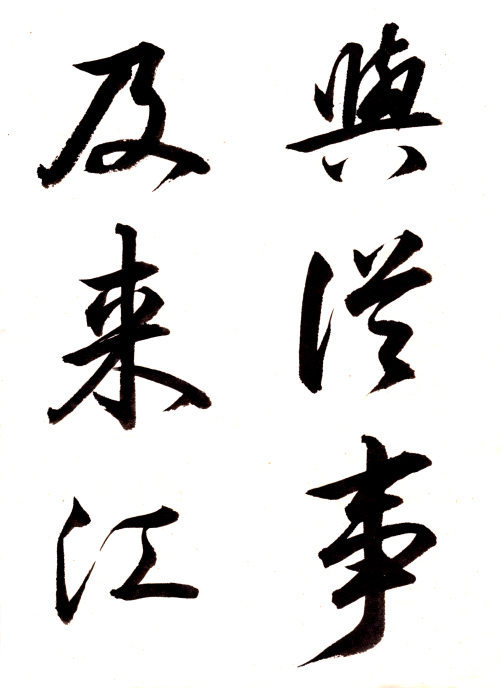 與從事
及来江